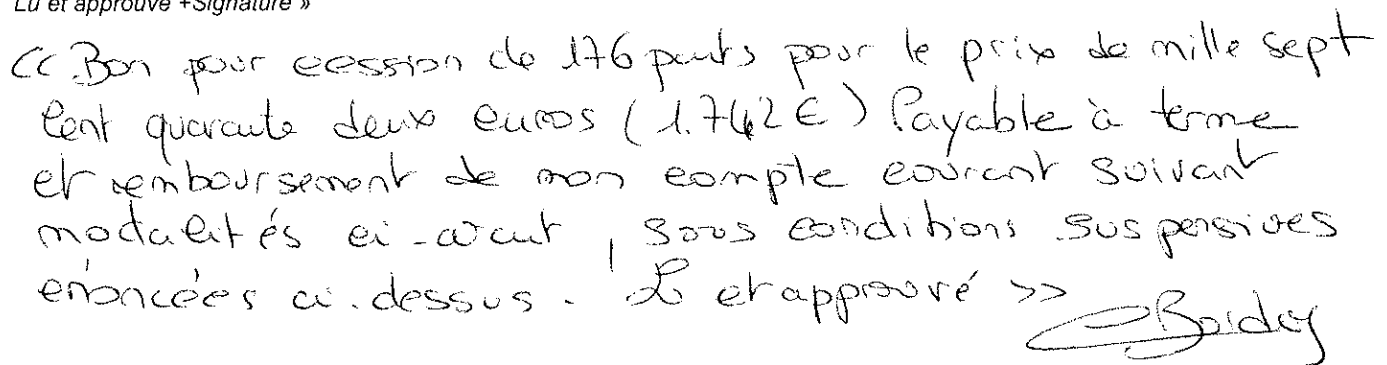 Lu et approuvé +Signature »
« Bon pour cession de 176 parts pour le prix de mille sept
cent quarante deux euros (1.742 €) Payable à terme
et remboursement de mon compte courant suivant
modalités ci-avant, sous conditions suspensives
énoncées ci-dessus. Lu et approuvé »